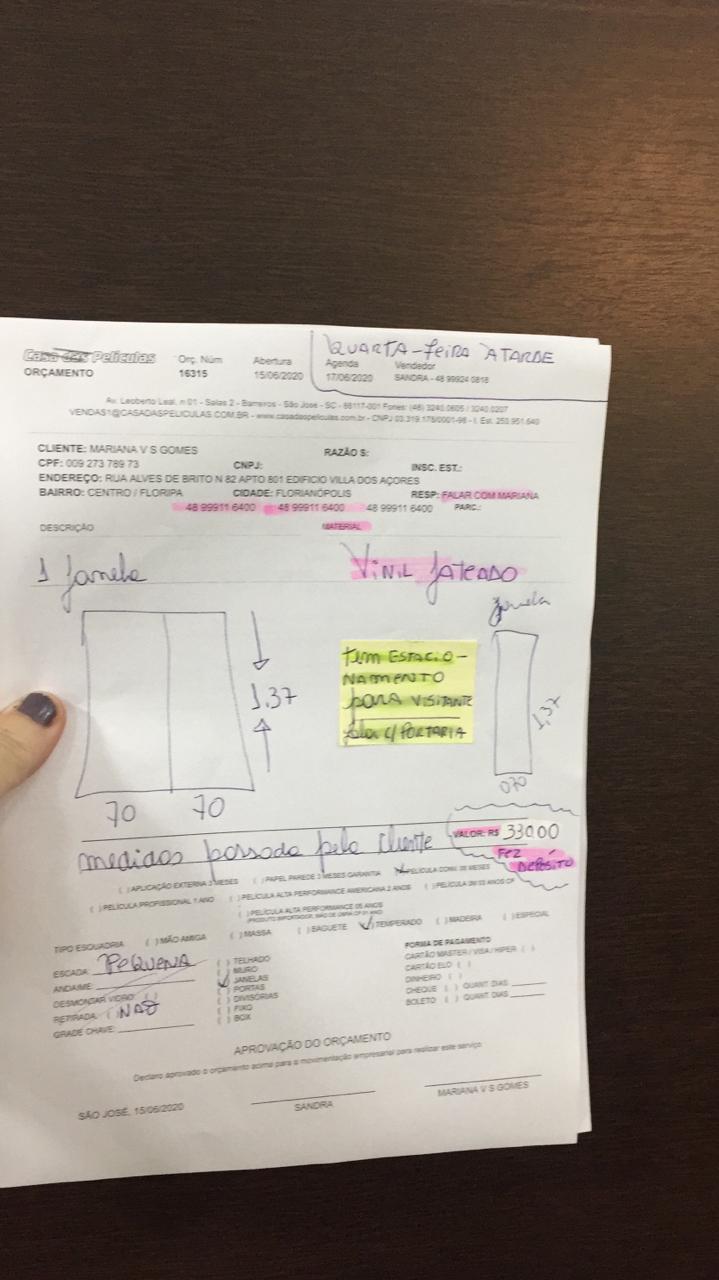 QUARTA-feira ATARDE
Casa das Películas Orç. Núm Abertura Agenda Vendedor
ORÇAMENTO 16315 15/06/2020 17/06/2020 SANDRA - 48 99924 0818
Av. Leoberto Leal, n 01 - Salas 2 - Barreiros - São José - SC - 88117-001 Fones: (48) 3240.0605 / 3240.0207
VENDAS1@CASADASPELICULAS.COM.BR - www.casadaspeliculas.com.br - CNPJ 03.319.178/0001-98 - I. Est. 253.951.640
CLIENTE: MARIANA V S GOMES RAZÃO S:
CPF: 009 273 789 73 CNPJ: INSC. EST.:
ENDEREÇO: RUA ALVES DE BRITO N 82 APTO 801 EDIFICIO VILLA DOS AÇORES
BAIRRO: CENTRO / FLORIPA CIDADE: FLORIANÓPOLIS RESP: FALAR COM MARIANA
48 99911 6400 48 99911 6400 48 99911 6400 PARC.:
DESCRIÇÃO MATERIAL
1 Janela VINIL JATEADO
Janela
tem ESTACIO-
NAMENTO
para VISITANTE
falar c/ PORTARIA
1,37 1,37
70 70 070
medidas passada pelo cliente VALOR: R$ 330,00
FEZ
DEPÓSITO
( ) APLICAÇÃO EXTERNA 3 MESES ( ) PAPEL PAREDE 3 MESES GARANTIA PELÍCULA COML 06 MESES
( ) PELÍCULA PROFISSIONAL 1 ANO ( ) PELÍCULA ALTA PERFORMANCE AMERICANA 2 ANOS ( ) PELÍCULA 3M 03 ANOS CF
( ) PELÍCULA ALTA PERFORMANCE 05 ANOS
(PRODUTO IMPORTADOR, MÃO DE OBRA CP 01 ANO)
TIPO ESQUADRIA ( ) MÃO AMIGA ( ) MASSA ( ) BAGUETE TEMPERADO ( ) MADEIRA ( ) ESPECIAL
ESCADA: PEQUENA ( ) TELHADO FORMA DE PAGAMENTO
ANDAIME: ( ) MURO CARTÃO MASTER / VISA / HIPER ( )
DESMONTAR VIDRO: ( ) JANELAS CARTÃO ELO ( )
RETIRADA: ( ) NÃO ( ) PORTAS DINHEIRO ( )
GRADE CHAVE: ( ) DIVISÓRIAS CHEQUE ( ) QUANT DIAS
( ) FIXO BOLETO ( ) QUANT DIAS
( ) BOX
APROVAÇÃO DO ORÇAMENTO
Declaro aprovado o orçamento acima para a movimentação empresarial para realizar este serviço
SÃO JOSÉ, 15/06/2020 SANDRA MARIANA V S GOMES